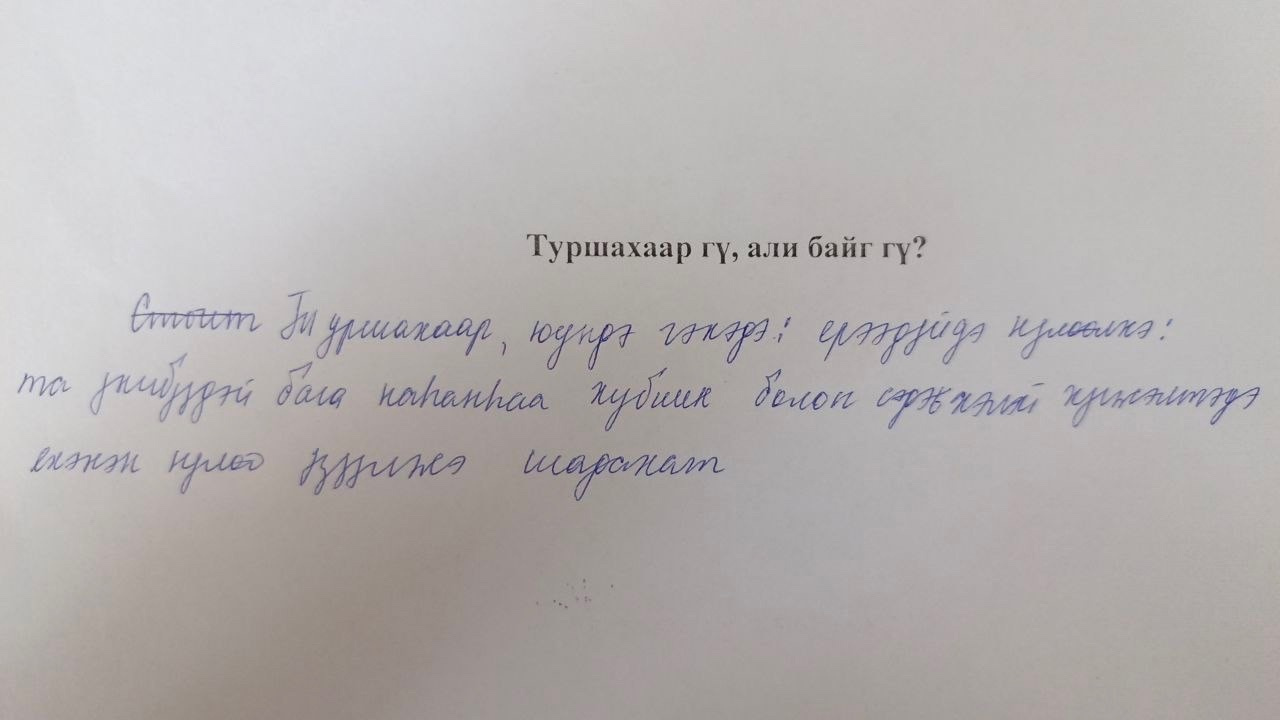 Туршахаар гү, али байг гү?
Стоит Туршахаар, юундэ гэхэдэ: ерээдүйдэ нүлөөлхэ:
та үхибүүдэй бага наһанһаа хубиин болон сэдьхэлэй хүгжэлтэдэ
ехэхэн нүлөө үзүүлжэ шадахат